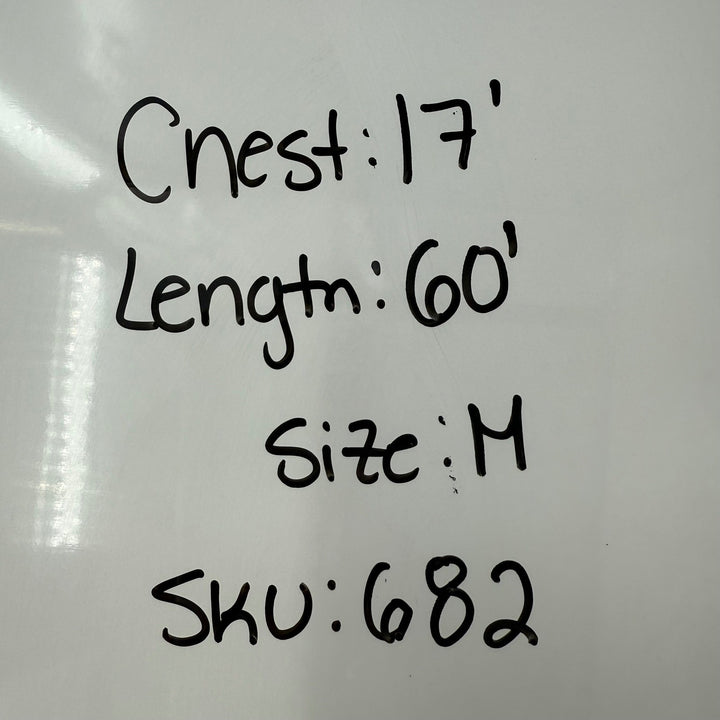 Chest: 17'
Length: 60'
Size: M
SKU: 682